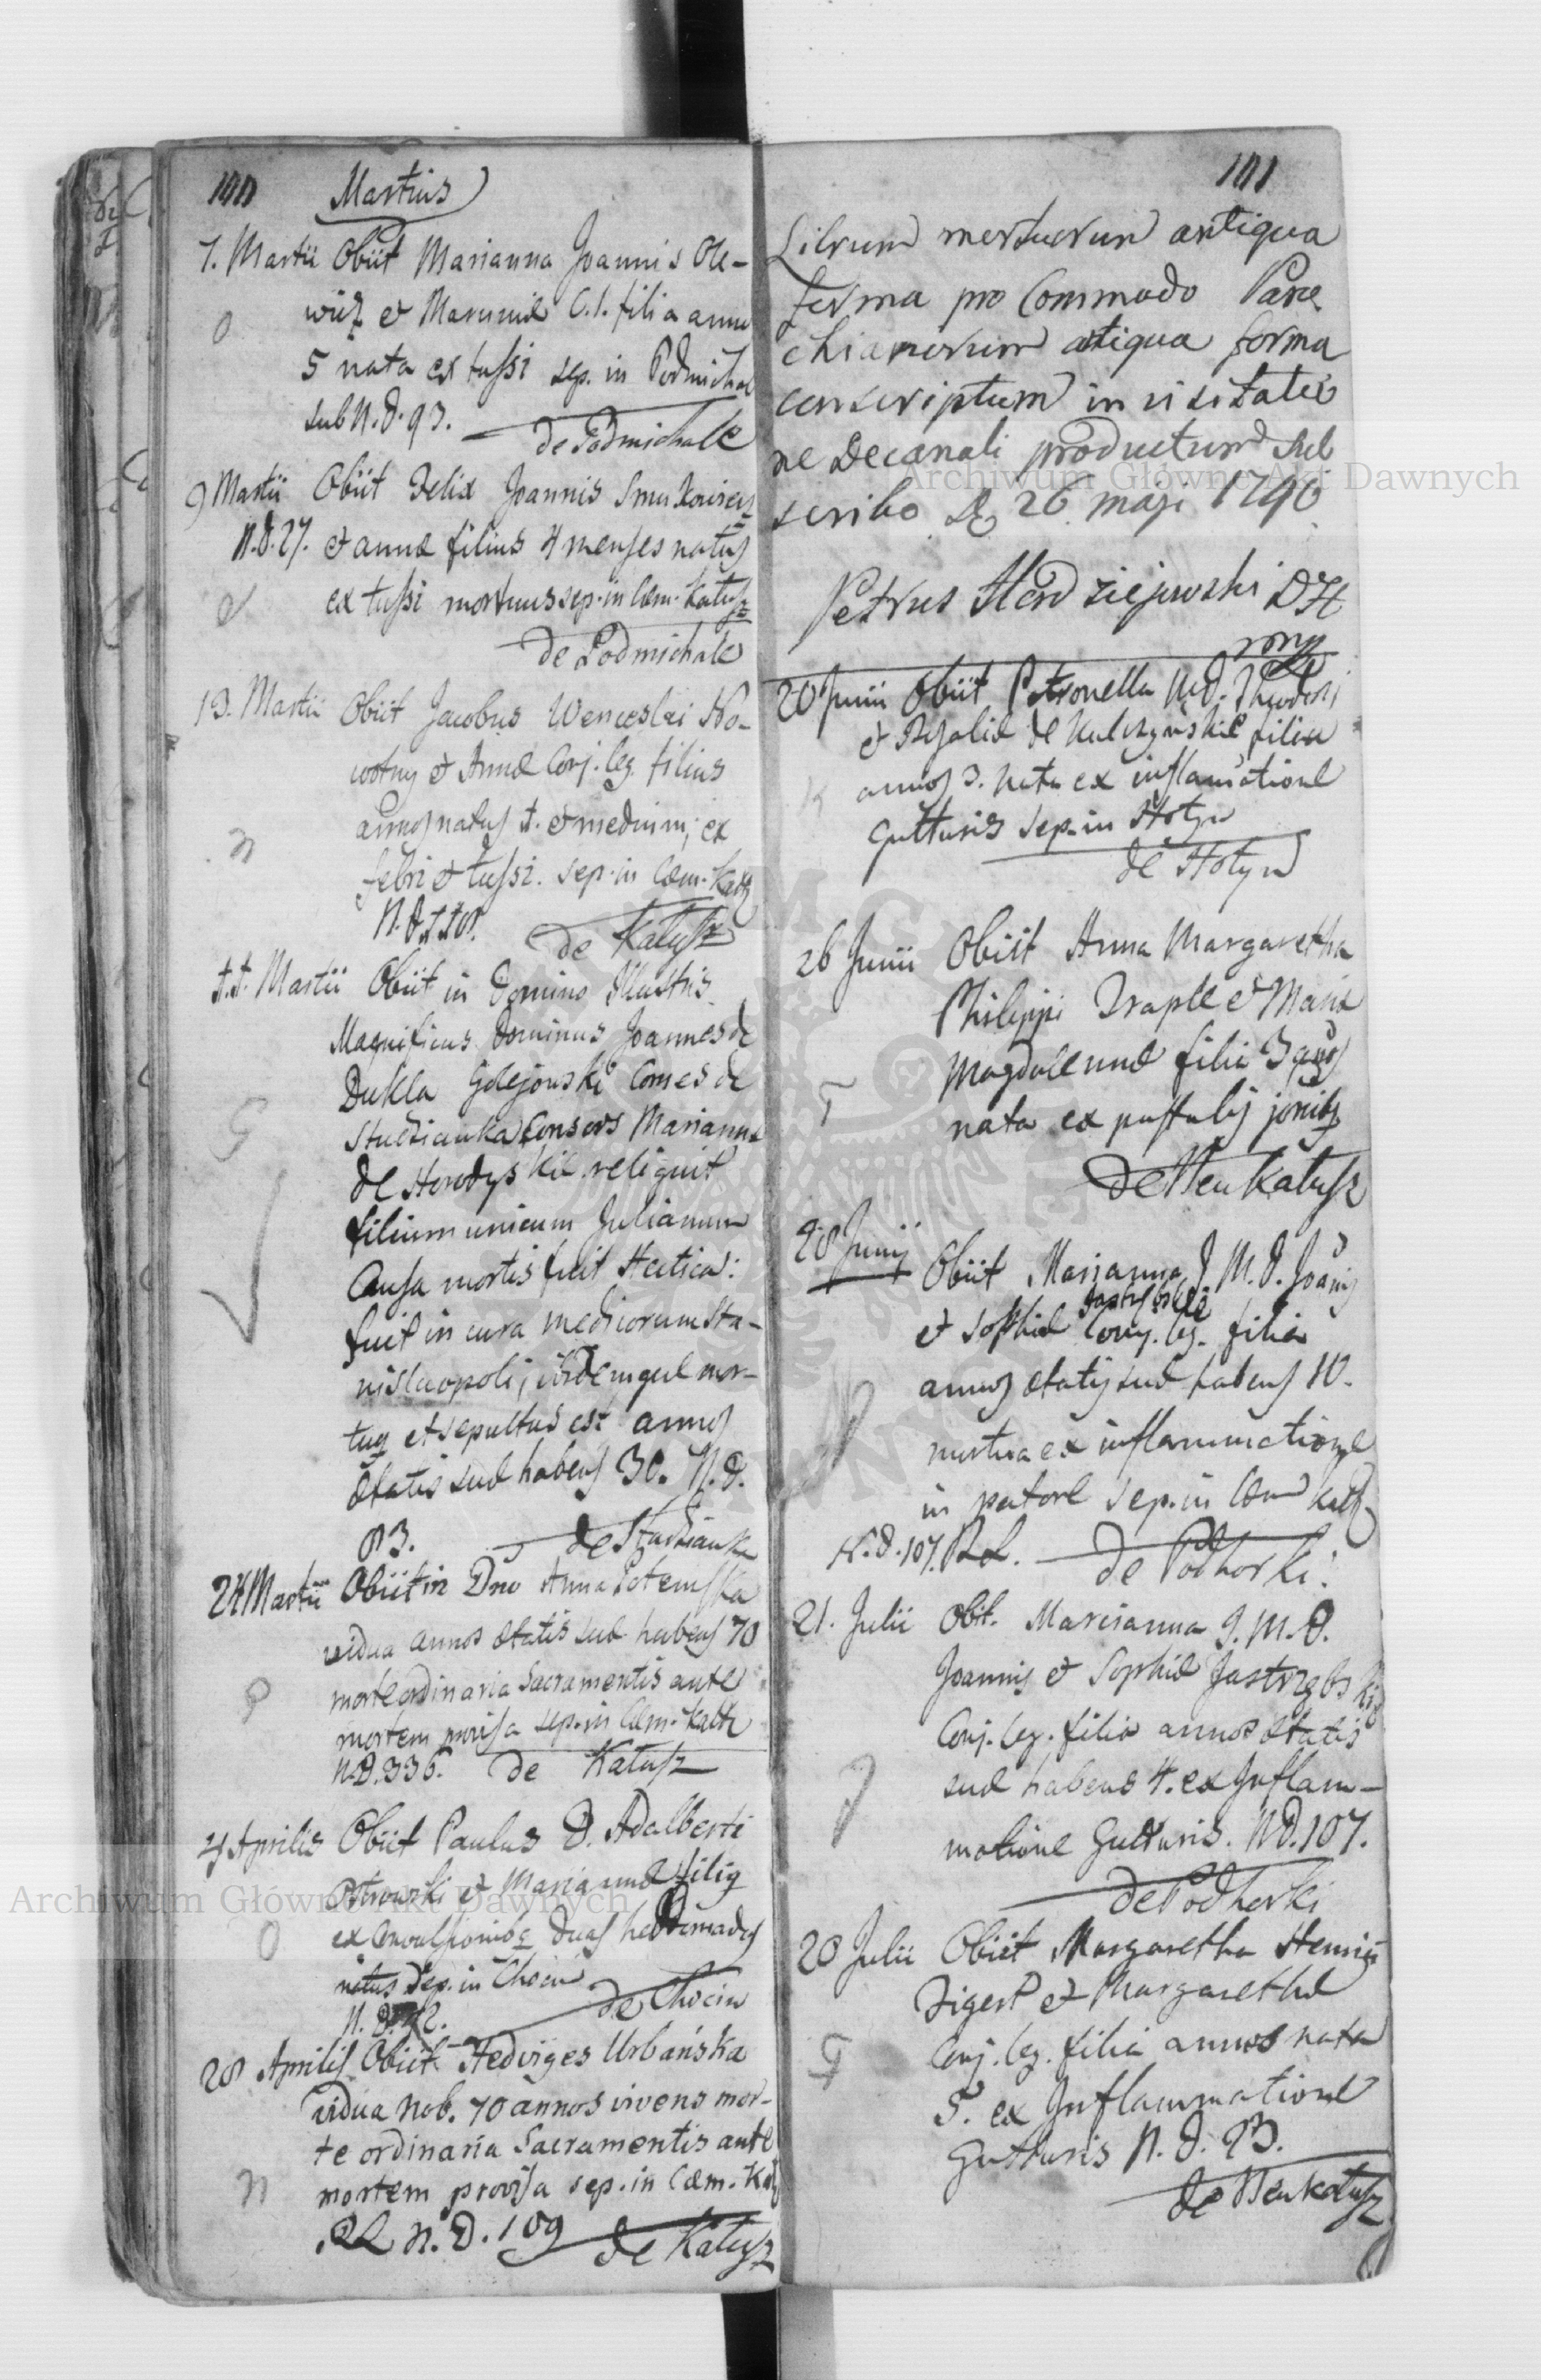 100 Martius
7. Martii Obiit Marianna Joannis Ole-
wicz et Mariannæ C. l. filia annos
5 nata ex tussi sep. in Podmichal
sub N. d. 93.
de Podmichale
9 Martii Obiit Felix Joannis
N. d. 27. et annæ filius 4 menses natus
ex tussi mortuus sep. in Cæm. Kałusz
de Podmichale
13. Martii Obiit Jacobus Wenceslai No-
wotny et Annæ Conj. leg. filius
annos natus 1. et medium; ex
febri et tussi. sep. in Cæm. Kałsz
N. d.
de Kałusz
Martii Obiit in Domino Illustris
Magnificus Dominus Joannes de
Dukla Golejowski Comes de
Studzianka Consors Marianna
de Horodyskie reliquit
filium unicum Julianum
Causa mortis fuit Hectica:
fuit in cura medicorum Sta-
nislaopoli, ibidemque mor-
tuus et sepultus est annos
ætatis suæ habens 30. N. d.
de Studzianka
24 Martii Obiit in Dno Anna
vidua annos ætatis suæ habens 70
morte ordinaria Sacramentis ante
mortem provisa sep. in Cæm. Kałsz
N. D. 336. de Kałusz
Aprilis Obiit Paulus D. Adalberti
Ostrowski et Mariannæ filius
ex convulsionibus duas hebdomadas
natus Sep. in Chocin
N. D.
de Chocin
28 Aprilis Obiit Hedviges Urbańska
vidua Nob. 70 annos vivens mor-
te ordinaria Sacramentis ante
mortem provisa sep. in Cæm. Kał
RL N. D. 109 de Kałusz
101
Librum mortuorum antiqua
forma pro Commodo Paro
chianorum atiqua forma
conscriptum in visitatio
ne Decanali productum Sub
scribo D 26 maji 1796
Petrus
20 Junii Obiit Petronella M. D. Theodori
et Rosaliæ de Kulczynskie filia
annos 3. nata ex inflamatione
Gutturis sep. in Hołyn
de Hołyn
26 Junii Obiit Anna Margaretha
Philippi Traple et Mariæ
Magdalennæ filia 3 anos
nata ex pustulis
de Neu Kałusz
28 Junij Obiit Marianna J. M. D. Joanis
Jastrzbskie
et Sophiæ Conj. leg. filia
annos ætatis suæ habens 10.
mortua ex inflammatione
in pectore Sep. in Cæm Kałsz
N. d. 107. RL. de Podhorki.
21. Julii Obit. Marianna J. M. D.
Joannis et Sophiæ Jastrzębskie
Conj. leg. filia annos ætatis
suæ habens 4. ex Inflam-
matione Gutturis. ND. 107.
de Podhorki
28 Julii Obiit Margaretha Henrici
Figert et Margarethæ
Conj. leg. filia annos nata
5. ex Inflammatione
Gutturis N. d. 93.
de Neu Kałusz
Archiwum Główne Akt Dawnych
Archiwum Główne Akt Dawnych